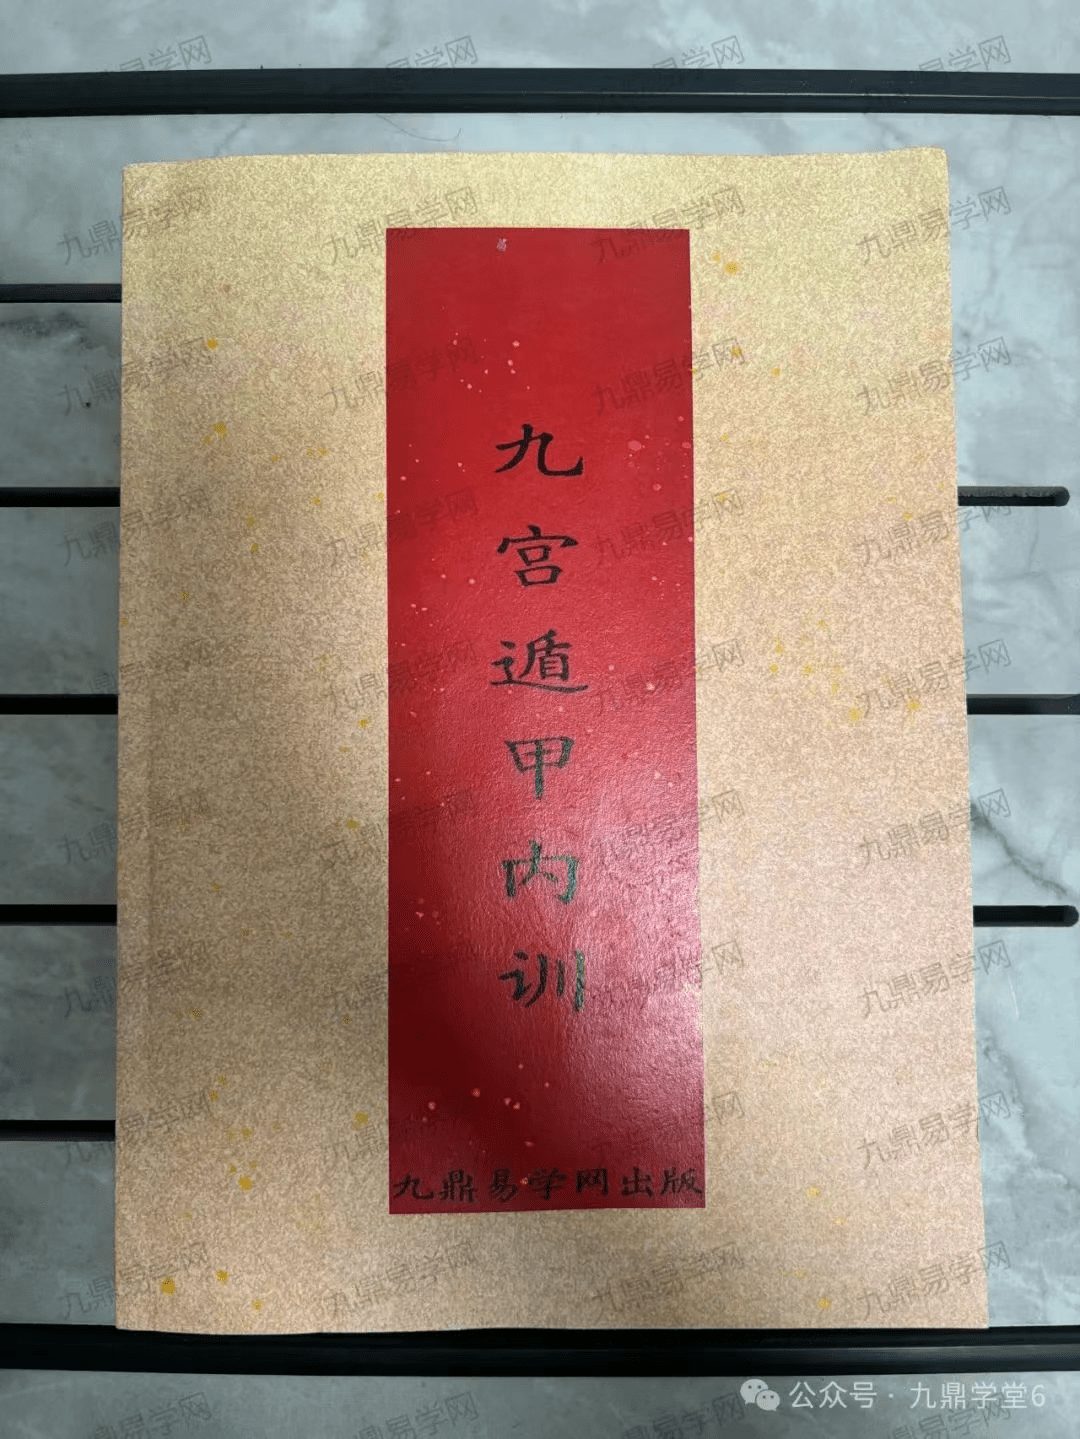 九宫遁甲内训
九鼎易学网出版
九鼎易学网
公众号 · 九鼎学堂6